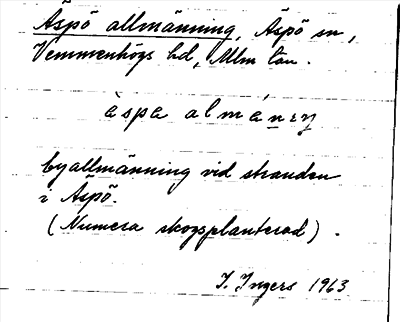 Äspö allmänning, Äspö sn,
Vemmenhögs hd, Mlm län.
àspa almánıŋ
byallmänning vid stranden
i Äspö.
(Numera skogsplanterad).
I. Ingers 1963